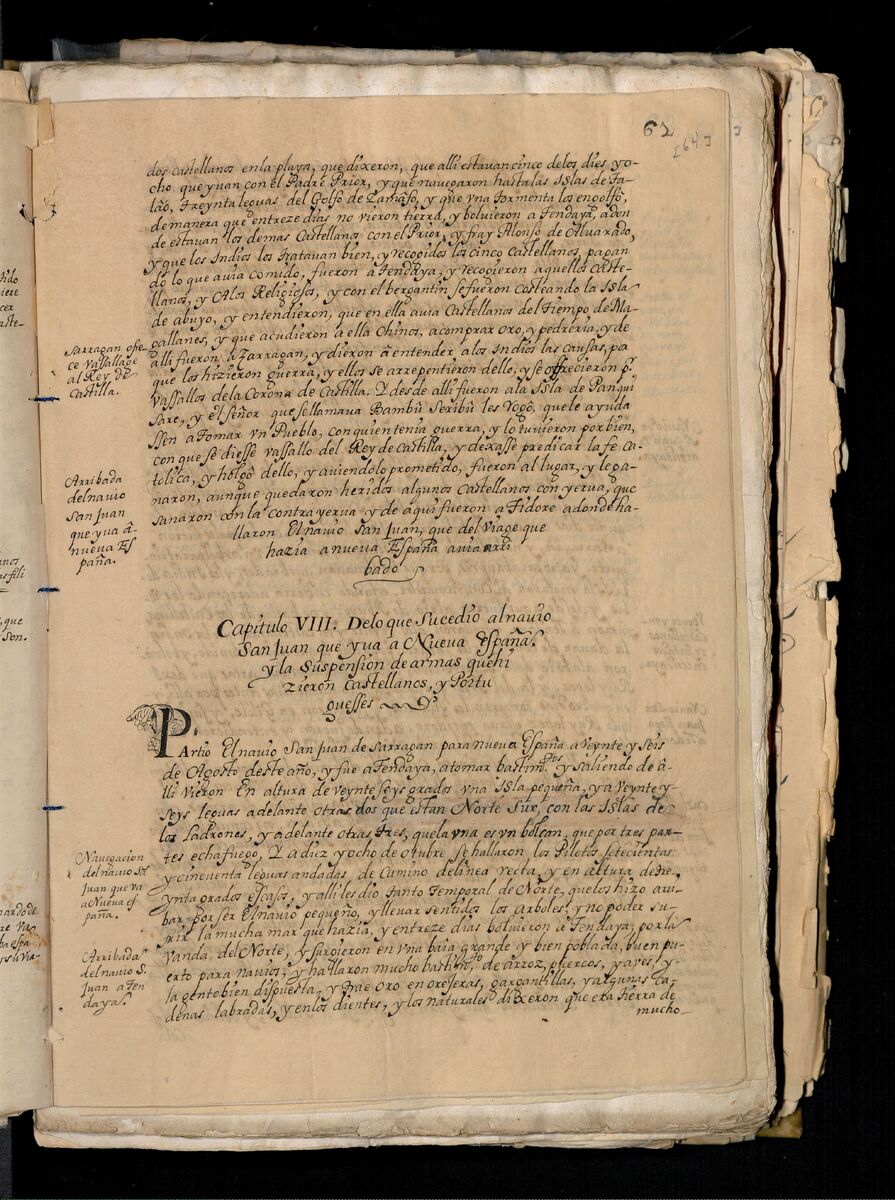 62
[64]
dos castellanos en la playa, que dixeron, que alli estavan cinco de los dies y o-
cho que yvan con el Padre Prior, y que navegaron hasta las Islas de Ta-
lao, treynta leguas del Golfo de Zamafo, y que vna tormenta los engolfò,
de manera que en treze dias no vieron tierra, y bolvieron a Tendaya, adon
de estavan los demas Castellanos con el Prior, y fray Alonso de Alvarado,
y que los Indios los tratavan bien, y recogidos los cinco castellanos, pagan
do lo que avia comido, fueron a Tendaya, y recogieron aquellos Caste-
llanos, y A los Religiosos, y con el bergantin se fueron costeando la Isla
de abuyo, y entendieron, que en ella avia Castellanos del Tiempo de Ma-
gallanes, y que acudieron a ella Chinos, a comprar oro, y pedreria, y de
alli fueron a Zarragan, y dieron â entender, a los Indios las causas, por
que los hizieron guerra, y ellos se arrepentieron dello, y se offrecieron p.r
vassallos de la Corona de Castilla. Y desde alli fueron a la Isla de Pangui
sare, y el señor que se llamava Bambù Seribù les rogò, que le ayuda
ssen a tomar vn Pueblo, con quien tenia guerra, y lo tuvieron por bien,
con que se diesse vassallo del Rey de Castilla, y dexasse predicar la fe Ca-
tolica, y holgò dello, y aviendolo prometido, fueron al lugar, y le ga-
naron, aunque quedaron heridos algunos Castellanos con yerva, que
sanaron con la contrayerva y de aqui fueron a Tidore adonde ha-
llaron El navio San Juan, que del viage que
hazia a nueva España avia arri
bado
Sarragan ofre
ce vassallage
al Rey de
Castilla.
Arribada
del navio
San Juan
que yva â
nueva Es
paña.
Capitulo VIII. De lo que sucedio al navio
San Juan que yva a Nueva España.
y la Suspension de armas que hi
zieron Castellanos, y Portu
guesses
Partiò El navio San Juan de Sarragan para nueva España a Veynte y Seis
de Agosto deste año, y fue a Tendaya, a tomar bastim.tos y saliendo de a-
lli vieron En altura de veynte seys grados vna Isla pequeña, y a veynte y-
seys leguas adelante otras dos que estan Norte Sur, con las Islas de
los Ladrones, y adelante otras tres, que la vna es vn bolcan, que por tres par-
tes echa fuego, Y a diez y ocho de Otubre se hallaron los Pilotos setecientas
y cincuenta leguas andadas, de Camino de linea recta, y en altura de tre
ynta grados escasos, y alli les dio tanto Temporal de Norte, que los hizo arri
bar por ser El navio pequeño, y llevar sentidos los arboles, y no poder su-
frir la mucha mar que hazia, y en treze dias bolvieron a Tendaya, por la
vanda, del Norte, y surgieron en vna baia grande y bien poblada, buen pu-
erto para navios, y hallaron mucho bastim.to de arroz, puercos, y aves, y
la gente bien dispuesta, y trae Oro en orejeras, gargantillas, y algunas ca-
denas labradas, y en los dientes, y los naturales dixeron que era tierra de
mucho
Navegacion
del navio Sn
Juan que va
a Nueva es
paña.
Arribada
del navio S.
Juan a Ten
daya.